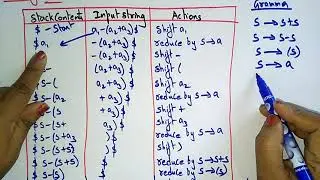 Stack Content Input string Actions
Grammar
$ - Start a₁-(a₂+a₃)$ shift a₁
S → S+S
$ a₁ -(a₂+a₃)$ reduce by S→a
S → S-S
-(a₂+a₃)$ shift -
S → (S)
(a₂+a₃)$ shift (
S → a
$ S-( a₂+a₃)$ shift a₂
$ S-(a₂ +a₃)$ reduce by S→a
$ S-(S +a₃)$ shift +
$ S-(S+ a₃)$ shift a₃
$ S-(S+a₃ )$ reduce by S→a
$ S-(S+S )$ shift )
$ S-(S+S) $ reduce by S→S+S
$ S-(S) $ reduce by S→(S)